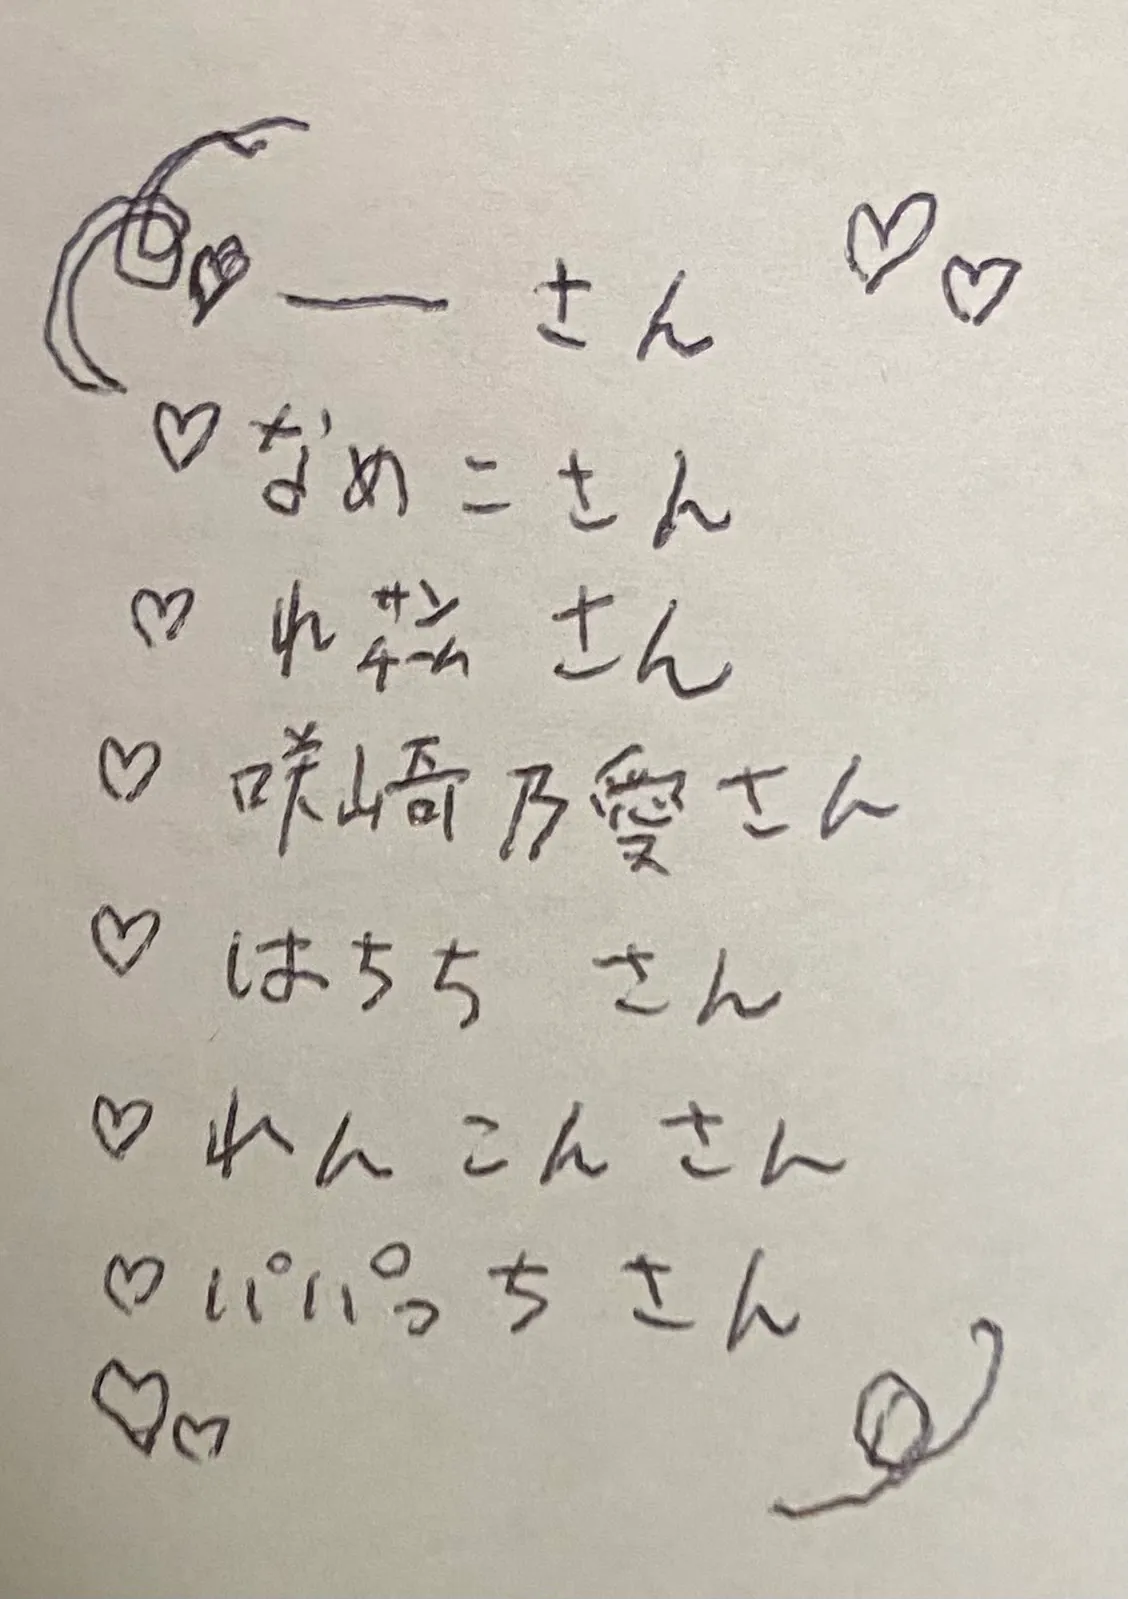 一 さん
なめこさん
れ サンチーム さん
咲崎乃愛さん
はちち さん
れんこんさん
パパっちさん